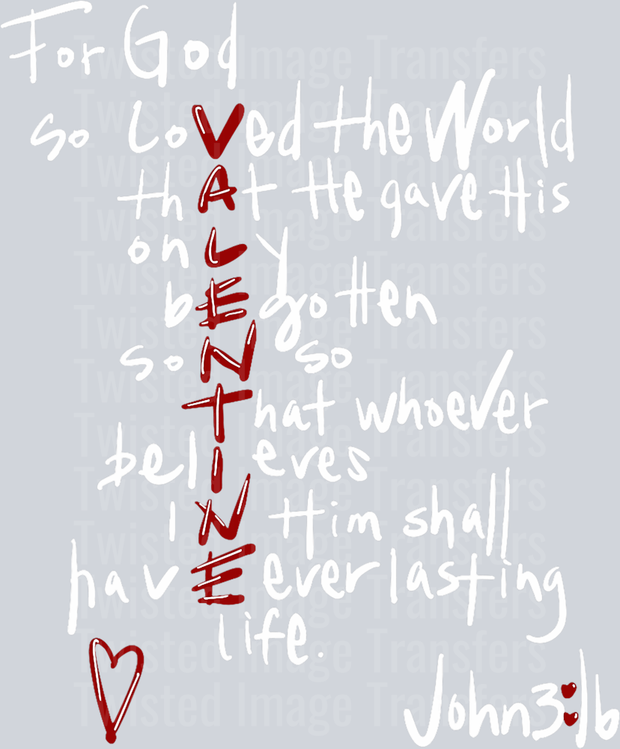 For God
so LoVed the World
thAt He gave His
onLy
bEgotten
soN so
That whoever
belIeves
iN Him shall
havE everlasting
life.
John 3:16
Twisted Image Transfers